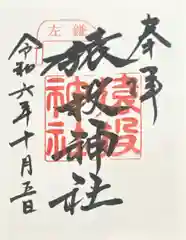 奉拝
猿投神社
左鎌
猿投
神社
令和六年十月五日